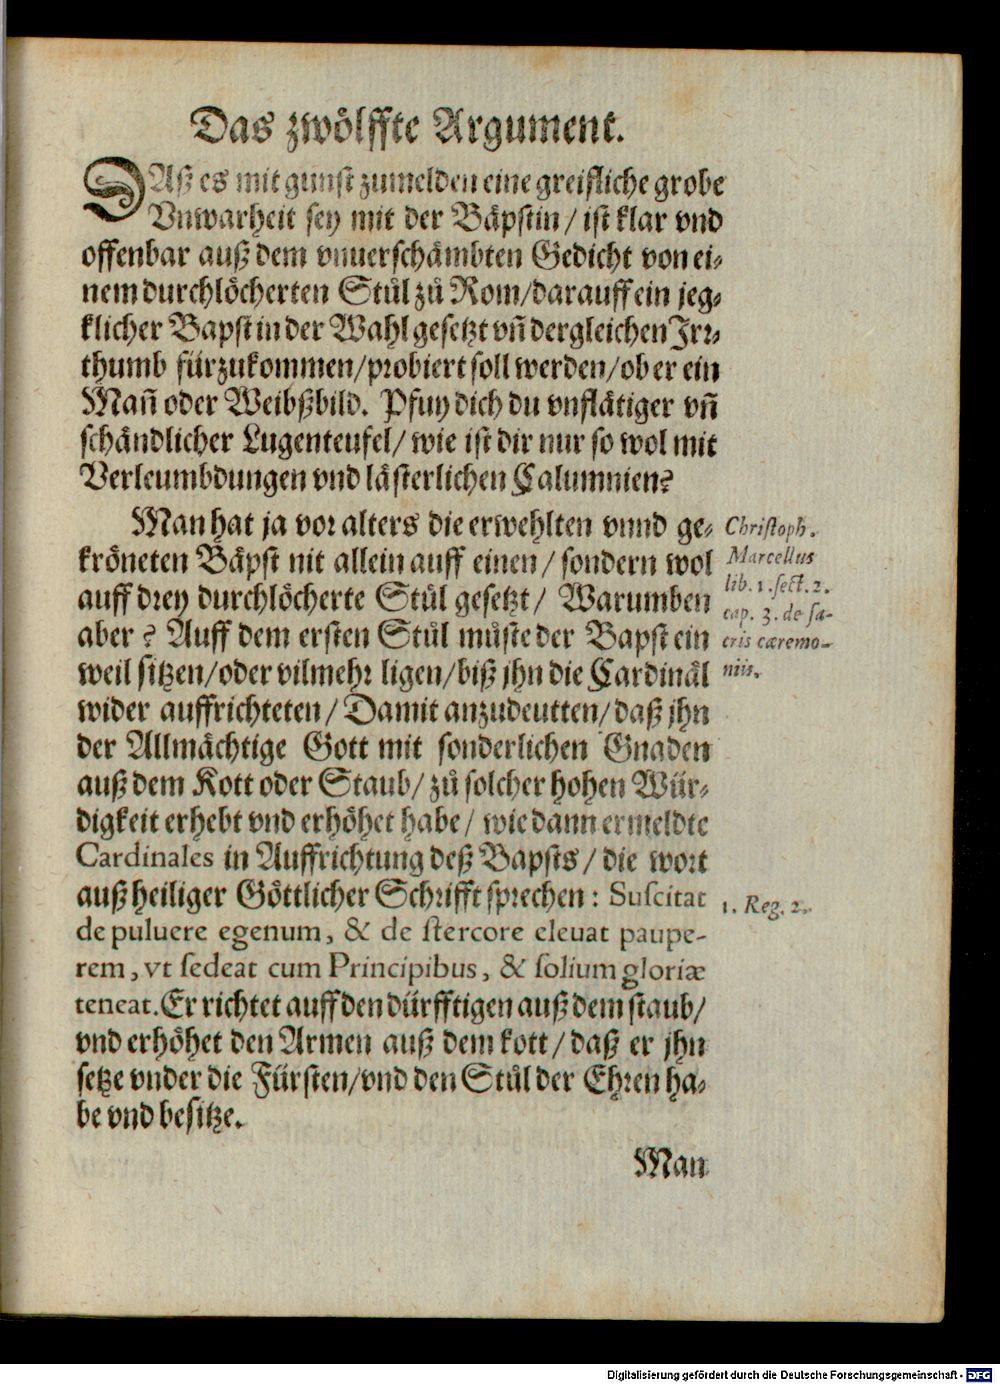 Das zwölffte Argument.
DAß es mit gunst zumelden eine greifliche grobe
Vnwarheit sey mit der Bäpstin / ist klar vnd
offenbar auß dem vnuerschämbten Gedicht von ei-
nem durchlöcherten Stůl zů Rom / darauff ein jeg-
klicher Bapst in der Wahl gesetzt vñ dergleichen Irr-
thumb fürzukommen / probiert soll werden / ob er ein
Mañ oder Weibßbild. Pfuy dich du vnflätiger vñ
schändlicher Lugenteufel / wie ist dir nur so wol mit
Verleumbdungen vnd lästerlichen Calumnien?
Man hat ja vor alters die erwehlten vnnd ge-
kröneten Bäpst nit allein auff einen / sondern wol
auff drey durchlöcherte Stůl gesetzt / Warumben
aber? Auff dem ersten Stůl můste der Bapst ein
weil sitzen / oder vilmehr ligen / biß jhn die Cardinäl
wider auffrichteten / Damit anzudeutten / daß jhn
der Allmächtige Gott mit sonderlichen Gnaden
auß dem Kott oder Staub / zů solcher hohen Wür-
digkeit erhebt vnd erhöhet habe / wie dann ermeldte
Cardinales in Auffrichtung deß Bapsts / die wort
auß heiliger Göttlicher Schrifft sprechen: Suscitat
de puluere egenum, & de stercore eleuat paupe-
rem, vt sedeat cum Principibus, & solium gloriæ
teneat. Er richtet auff den dürfftigen auß dem staub /
vnd erhöhet den Armen auß dem kott / daß er jhn
setze vnder die Fürsten / vnd den Stůl der Ehren ha-
be vnd besitze.
Man
Christoph.
Marcellus
lib. 1. sect. 2.
cap. 3. de sa-
cris cæremo-
niis.
1. Reg. 2.
Digitalisierung gefördert durch die Deutsche Forschungsgemeinschaft - DFG